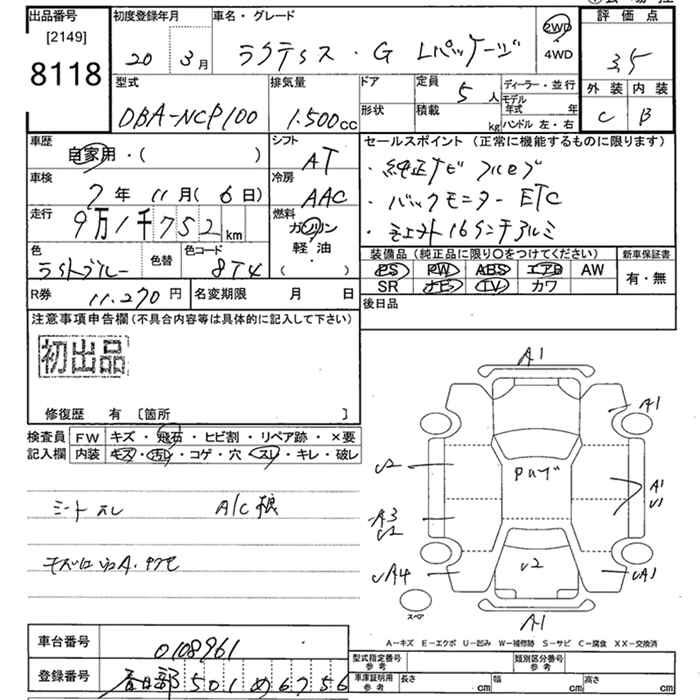 出品番号
[2149]
8118
初度登録年月
20 3月
車名・グレード
ラクティス・G Lパッケージ
2WD
4WD
評価点
3.5
外装 内装
C B
型式
DBA-NCP100
排気量
1.500cc
ドア
形状
定員
5人
積載
kg
ディーラー・並行
モデル年式 年
ハンドル 左・右
車歴
自家用・( )
シフト
AT
セールスポイント(正常に機能するものに限ります)
・純正ナビ フルセグ
・バックモニター ETC
・社外16インチアルミ
車検
7年 11月(6日)
冷房
AAC
走行
9万1千752km
燃料
ガソリン
軽油
( )
色
ライトブルー
色替
色コード
8T4
装備品(純正品に限り○をつけてください)
新車保証書
PS PW ABS エアB AW
SR ナビ TV カワ
有・無
R券
11.270円
名変期限 月 日
後日品
注意事項申告欄(不具合内容等は具体的に記入して下さい)
初出品
修復歴 有 [箇所 ]
検査員
記入欄
FW キズ・飛石・ヒビ割・リペア跡・×要
内装 キズ・汚レ・コゲ・穴・スレ・キレ・破レ
シートスレ A/C
A1
A1
U2
A1
U1
A3
U2
UA4
UA1
U2
A1
スペア
A-キズ E-エクボ U-凹み W-補修跡 S-サビ C-腐食 XX-交換済
車台番号
0108961
登録番号
春日部 501 め 6756
型式指定番号
参考
類別区分番号
参考
車庫証明用
参考
長さ cm 幅 cm 高さ cm